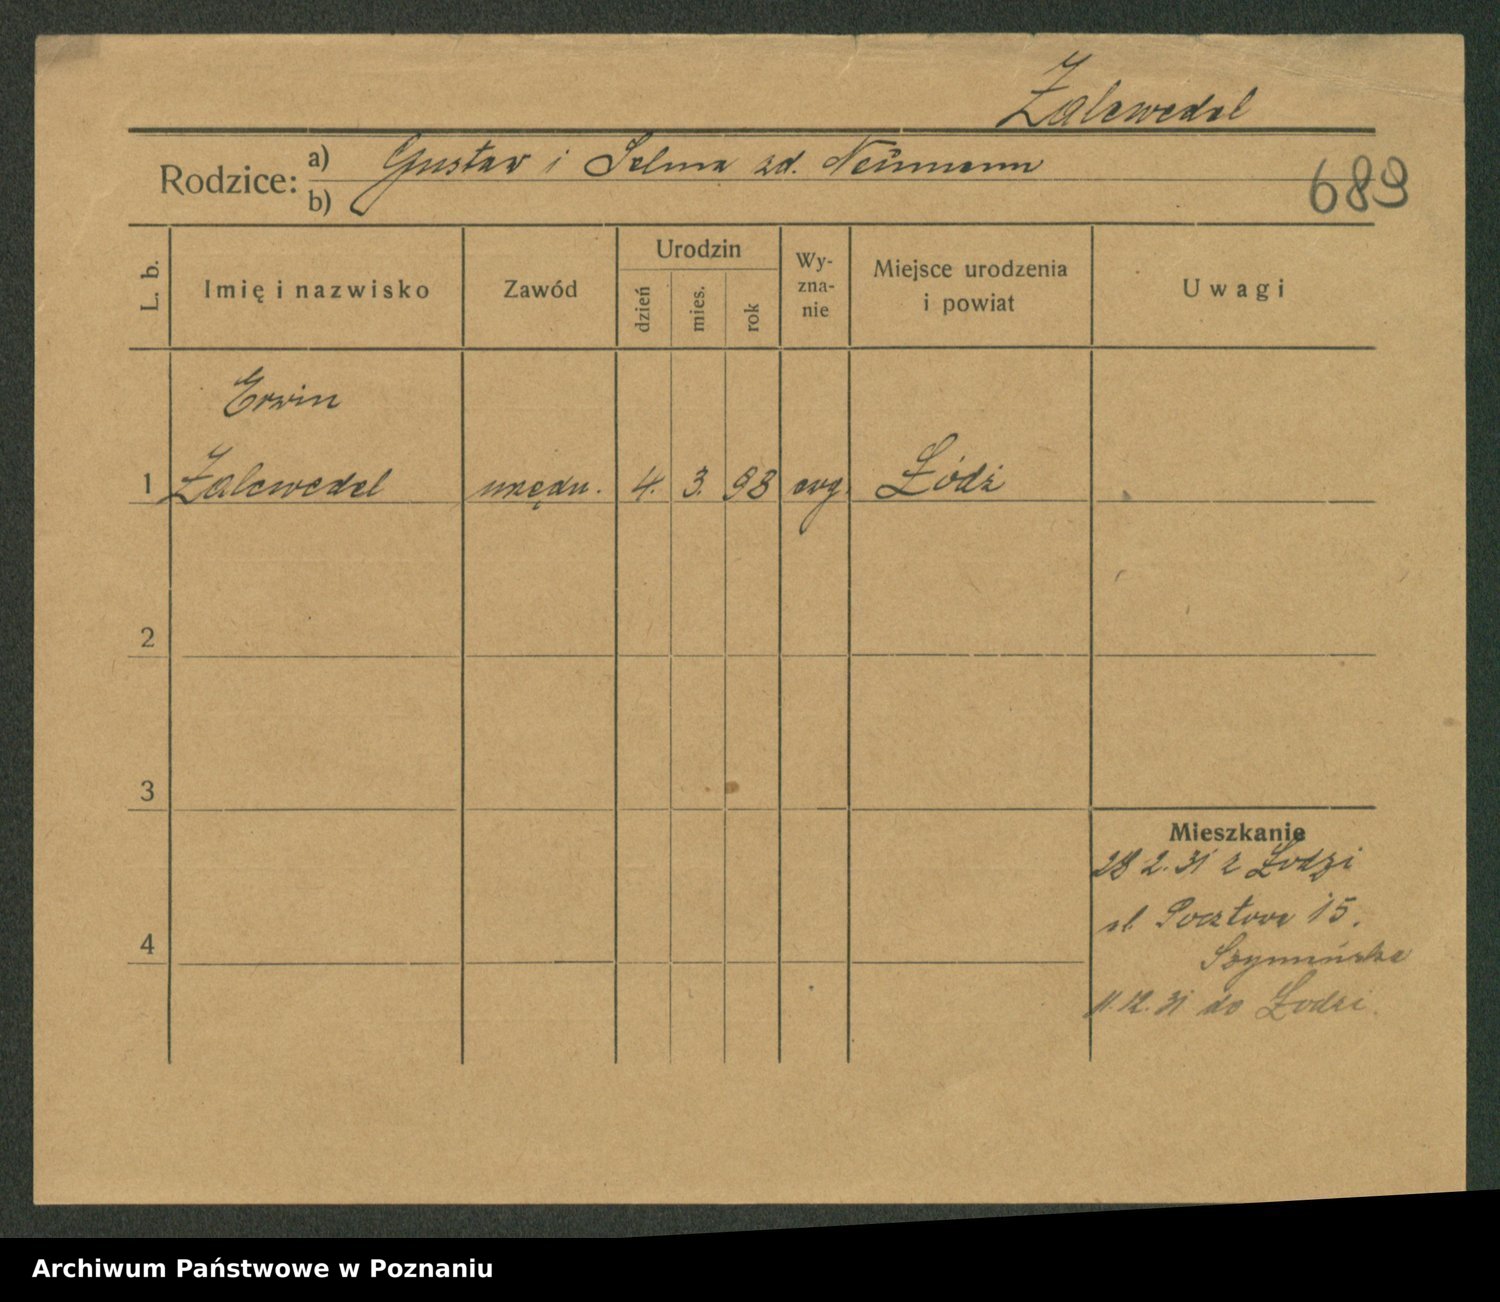 Zalewedel
Rodzice: a) Gustaw i Selma zd. Neümann
b)
689
L. b.
Imię i nazwisko
Zawód
Urodzin
dzień
mies.
rok
Wy-
zna-
nie
Miejsce urodzenia
i powiat
Uwagi
Erwin
1 Zalewedel urzędn. 4. 3. 98 ewg. Łódź
2
3
4
Mieszkanie
28 2. 31 z Łodzi
ul. Pocztowa 15.
11.12.31 do Łodzi.
Archiwum Państwowe w Poznaniu